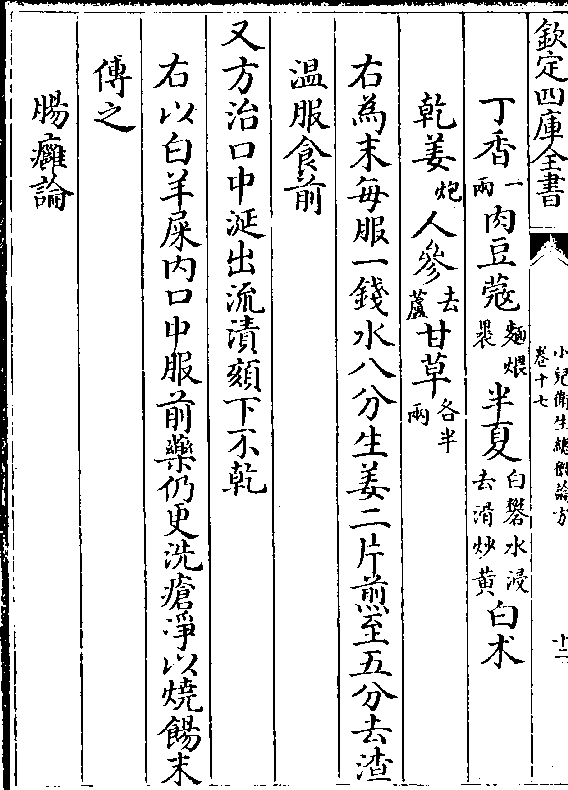 欽定四庫全書
小兒衛生總微論方
卷十七
十二
丁香一兩肉豆蔻麵煨裹半夏白礬水浸去滑炒黄白术
乾姜炮人參去蘆甘草各半兩
右為末每服一錢水八分生姜二片煎至五分去渣
温服食前
又方治口中涎出流漬頦下不乾
右以白羊屎内口中服前藥仍更洗瘡凈以燒餳末
傅之
腸癰論